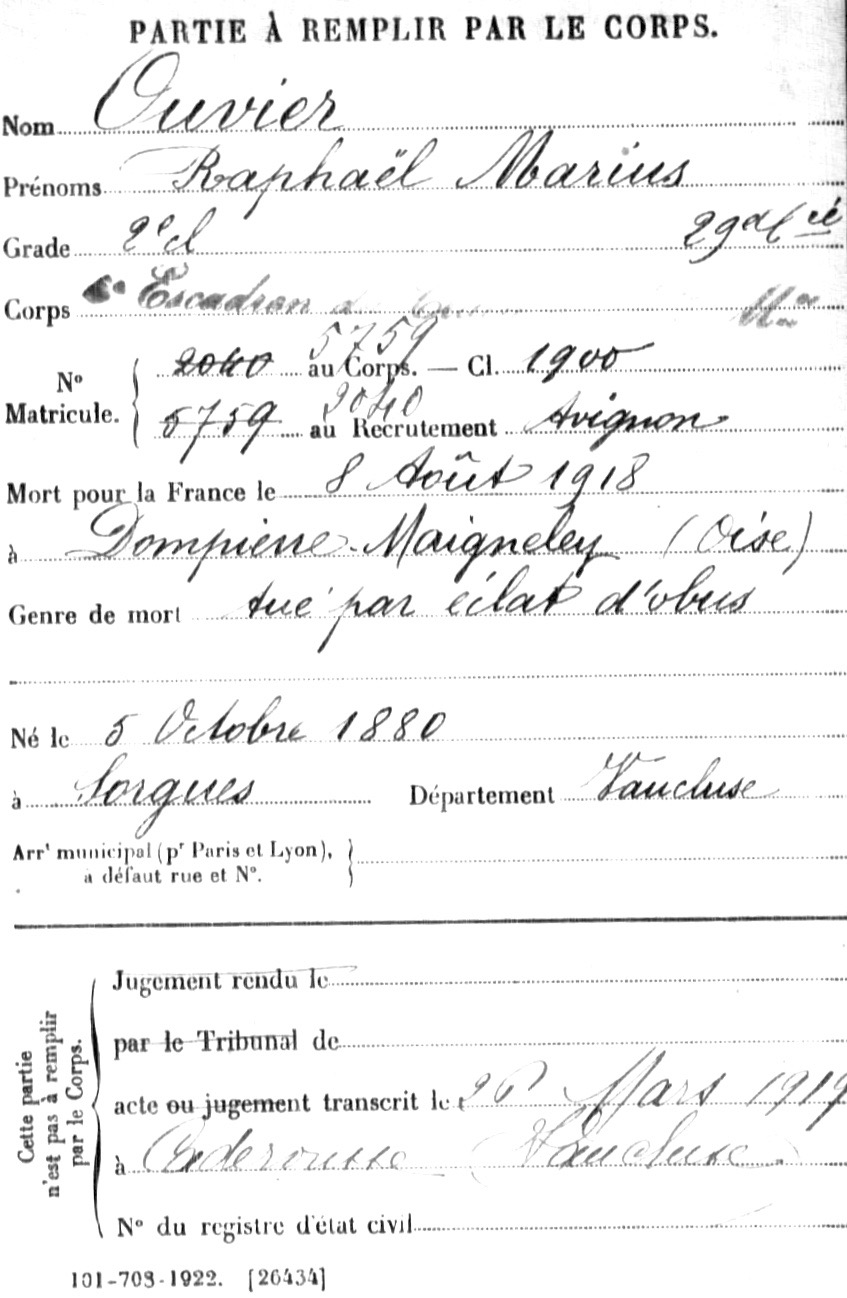 PARTIE À REMPLIR PAR LE CORPS.
Nom Ouvier
Prénoms Raphaël Marius
Grade 2e cl
Corps Escadron
5759
N° Matricule. 2040 au Corps. — Cl. 1900
2040
5759 au Recrutement Avignon
Mort pour la France le 8 Août 1918
à Dompierre-Maigneley (Oise)
Genre de mort tué par éclat d'obus
Né le 5 Octobre 1880
à Sorgues Département Vaucluse
Arrt municipal (pr Paris et Lyon),
à défaut rue et N°.
Cette partie
n'est pas à remplir
par le Corps.
Jugement rendu le
par le Tribunal de
acte ou jugement transcrit le Mars 1919
à Caderousse (Vaucluse)
N° du registre d'état civil
101-708-1922. [26434]